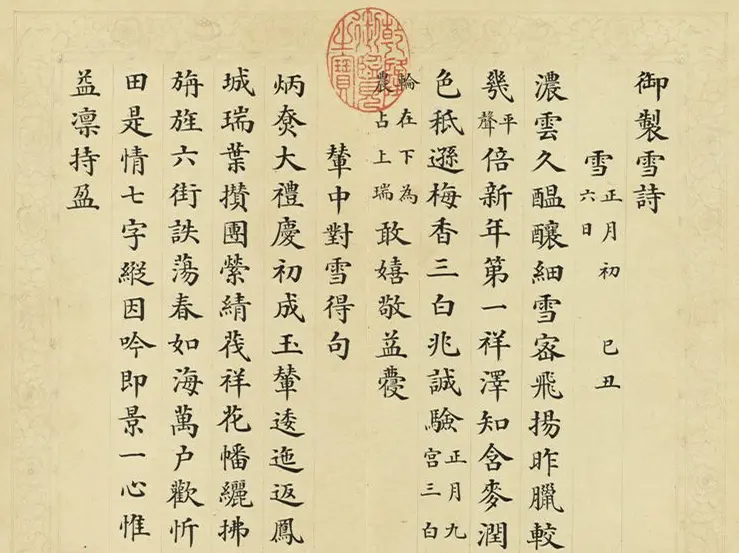 御製雪詩
雪 正月初六日 己丑
濃雲久醞釀細雪密飛揚昨臘較
幾平聲倍新年第一祥澤知含麥潤
色秖遜梅香三白兆誠驗正月九宮三白
輪在下為農占上瑞敢嬉敬益
輦中對雪得句
炳尞大禮慶初成玉輦逶迤返鳳
城瑞葉攢團縈綪茷祥花幡纚拂
旃旌六街詄蕩春如海萬户歡忻
田是情七字縱因吟即景一心惟
益凛持盈
乾隆御覽之寶